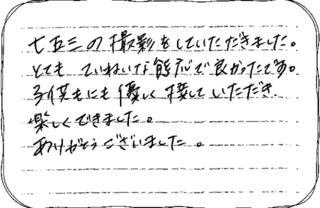 七五三の撮影をしていただきました。
とても ていねいな態応で良かったです。
子供もにも優しく接していただき
楽しくできました。
ありがとうございました。